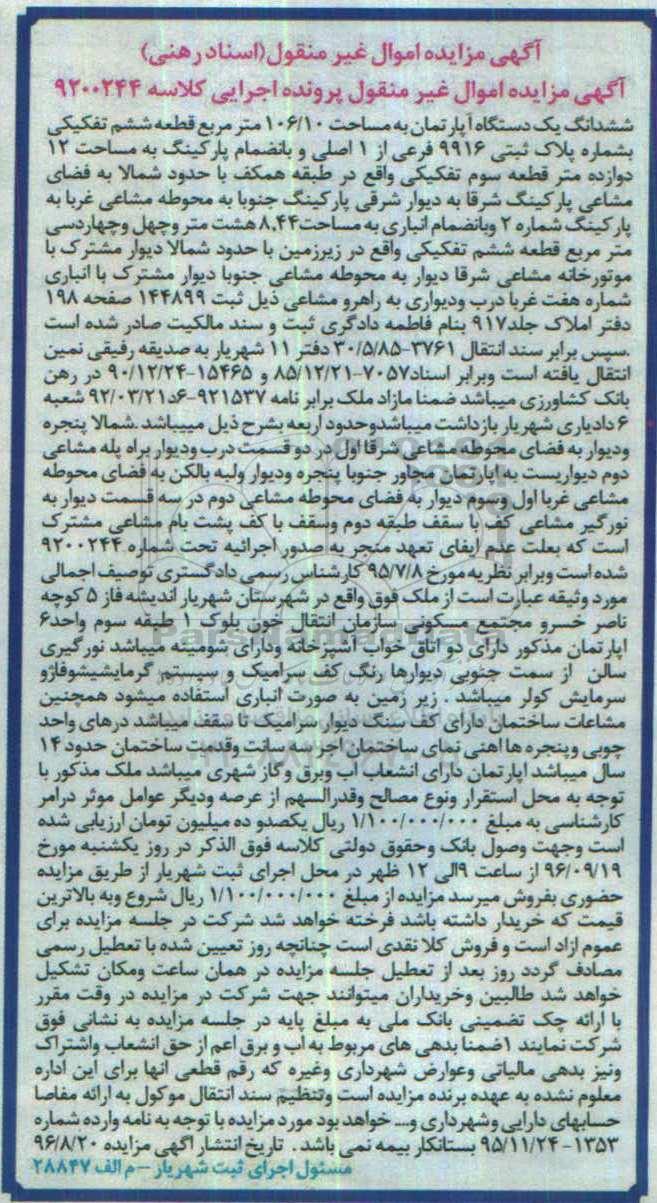 آگهی مزایده اموال غیر منقول(اسناد رهنی)
آگهی مزایده اموال غیر منقول پرونده اجرایی کلاسه ۹۲۰۰۲۴۴
ششدانگ یک دستگاه آپارتمان به مساحت ۱۰۶/۱۰ متر مربع قطعه ششم تفکیکی
بشماره پلاک ثبتی ۹۹۱۶ فرعی از ۱ اصلی و بانضمام پارکینگ به مساحت ۱۲
دوازده متر قطعه سوم تفکیکی واقع در طبقه همکف با حدود شمالا به فضای
مشاعی پارکینگ شرقا به دیوار شرقی پارکینگ جنوبا به محوطه مشاعی غربا به
پارکینگ شماره ۲ وبانضمام انباری به مساحت۸.۴۴ هشت متر وچهل وچهاردسی
متر مربع قطعه ششم تفکیکی واقع در زیرزمین با حدود شمالا دیوار مشترک با
موتورخانه مشاعی شرقا دیوار به محوطه مشاعی جنوبا دیوار مشترک با انباری
شماره هفت غربا درب ودیواری به راهرو مشاعی ذیل ثبت ۱۴۴۸۹۹ صفحه ۱۹۸
دفتر املاک جلد۹۱۷ بنام فاطمه دادگری ثبت و سند مالکیت صادر شده است
.سپس برابر سند انتقال ۳۷۶۱-۳۰/۵/۸۵ دفتر ۱۱ شهریار به صدیقه رفیقی نمین
انتقال یافته است وبرابر اسناد۷۰۵۷-۸۵/۱۲/۲۱ و ۱۵۴۶۵-۹۰/۱۲/۲۴ در رهن
بانک کشاورزی میباشد ضمنا مازاد ملک برابر نامه ۹۲۱۵۳۷-۶د۹۲/۰۳/۲۱ شعبه
۶ دادیاری شهریار بازداشت میباشدوحدود اربعه بشرح ذیل میبباشد .شمالا پنجره
ودیوار به فضای محوطه مشاعی شرقا اول در دو قسمت درب ودیوار براه پله مشاعی
دوم دیواریست به اپارتمان مجاور جنوبا پنجره ودیوار ولبه بالکن به فضای محوطه
مشاعی غربا اول وسوم دیوار به فضای محوطه مشاعی دوم در سه قسمت دیوار به
نورگیر مشاعی کف با سقف طبقه دوم وسقف با کف پشت بام مشاعی مشترک
است که بعلت عدم ایفای تعهد منجر به صدور اجرائیه تحت شماره ۹۲۰۰۲۴۴
شده است وبرابر نظریه مورخ ۹۵/۷/۸ کارشناس رسمی دادگستری توصیف اجمالی
مورد وثیقه عبارت است از ملک فوق واقع در شهرستان شهریار اندیشه فاز ۵ کوچه
ناصر خسرو مجتمع مسکونی سازمان انتقال خون بلوک ۱ طبقه سوم واحد۶
اپارتمان مذکور دارای دو اتاق خواب اشپزخانه ودارای شومینه میباشد نورگیری
سالن از سمت جنوبی دیوارها رنگ کف سرامیک و سیستم گرمایشیشوفاژو
سرمایش کولر میباشد . زیر زمین به صورت انباری استفاده میشود همچنین
مشاعات ساختمان دارای کف سنگ دیوار سرامیک تا سقف میباشد درهای واحد
چوبی وپنجره ها اهنی نمای ساختمان اجر سه سانت وقدمت ساختمان حدود ۱۴
سال میباشد اپارتمان دارای انشعاب اب وبرق وگاز شهری میباشد ملک مذکور با
توجه به محل استقرار ونوع مصالح وقدرالسهم از عرصه ودیگر عوامل موثر درامر
کارشناسی به مبلغ ۱/۱۰۰/۰۰۰/۰۰۰ ریال یکصدو ده میلیون تومان ارزیابی شده
است وجهت وصول بانک وحقوق دولتی کلاسه فوق الذکر در روز یکشنبه مورخ
۹۶/۰۹/۱۹ از ساعت ۹الی ۱۲ ظهر در محل اجرای ثبت شهریار از طریق مزایده
حضوری بفروش میرسد مزایده از مبلغ ۱/۱۰۰/۰۰۰/۰۰۰ ریال شروع وبه بالاترین
قیمت که خریدار داشته باشد فرخته خواهد شد شرکت در جلسه مزایده برای
عموم ازاد است و فروش کلا نقدی است چنانچه روز تعیین شده با تعطیل رسمی
مصادف گردد روز بعد از تعطیل جلسه مزایده در همان ساعت ومکان تشکیل
خواهد شد طالبین وخریداران میتوانند جهت شرکت در مزایده در وقت مقرر
با ارائه چک تضمینی بانک ملی به مبلغ پایه در جلسه مزایده به نشانی فوق
شرکت نمایند ۱ضمنا بدهی های مربوط به اب و برق اعم از حق انشعاب واشتراک
ونیز بدهی مالیاتی وعوارض شهرداری وغیره که رقم قطعی انها برای این اداره
معلوم نشده به عهده برنده مزایده است وتنظیم سند انتقال موکول به ارائه مفاصا
حسابهای دارایی وشهرداری و... خواهد بود مورد مزایده با توجه به نامه وارده شماره
۱۳۵۳-۹۵/۱۱/۲۴ بستانکار بیمه نمی باشد . تاریخ انتشار اگهی مزایده ۹۶/۸/۲۰
مسئول اجرای ثبت شهریار – م الف ۲۸۸۴۷
ParsNamadData